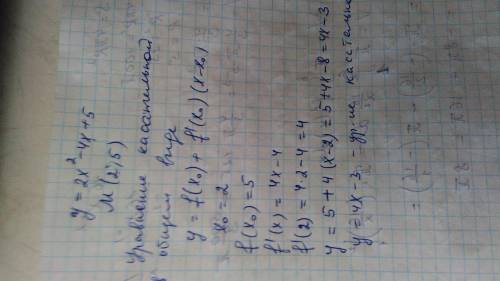 y = 2x² - 4x + 5
M (2; 5)
Уравнение касательной
в общем виде
y = f(x₀) + f'(x₀) (x-x₀)
x₀ = 2
f(x₀) = 5
f'(x) = 4x - 4
f'(2) = 4·2 - 4 = 4
y = 5 + 4(x-2) = 5 + 4x - 8 = 4x - 3
y = 4x - 3 - ур-ие касательной